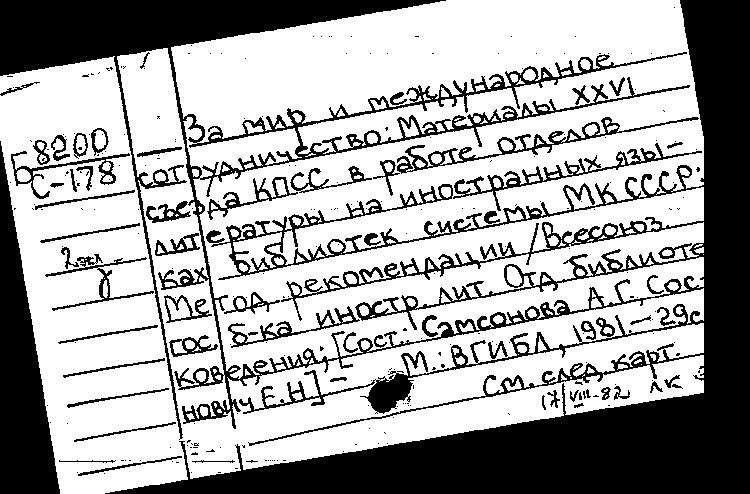 За мир и международное
Б 8200
С-178
сотрудничество: Материалы XXVI
съезда КПСС в работе отделов
литературы на иностранных язы-
2 экз
ках библиотек системы МК СССР:
Метод. рекомендации / Всесоюз.
гос. б-ка иностр. лит. Отд. библиоте
коведения; [Сост.: Самсонова А.Г., Сос-
нович Е.Н] — М.: ВГИБЛ, 1981 — 29с
См. след. карт.
17/VIII-82